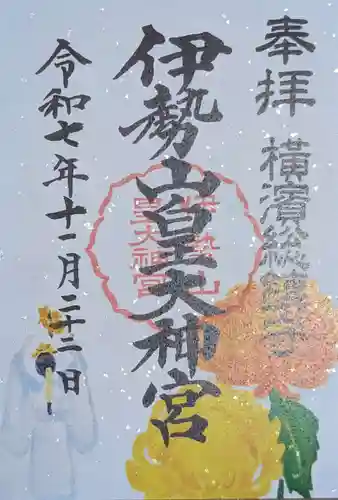 奉拝
横濱総鎮守
伊勢山皇大神宮
伊勢山
皇大神宮
令和七年十一月二十二日